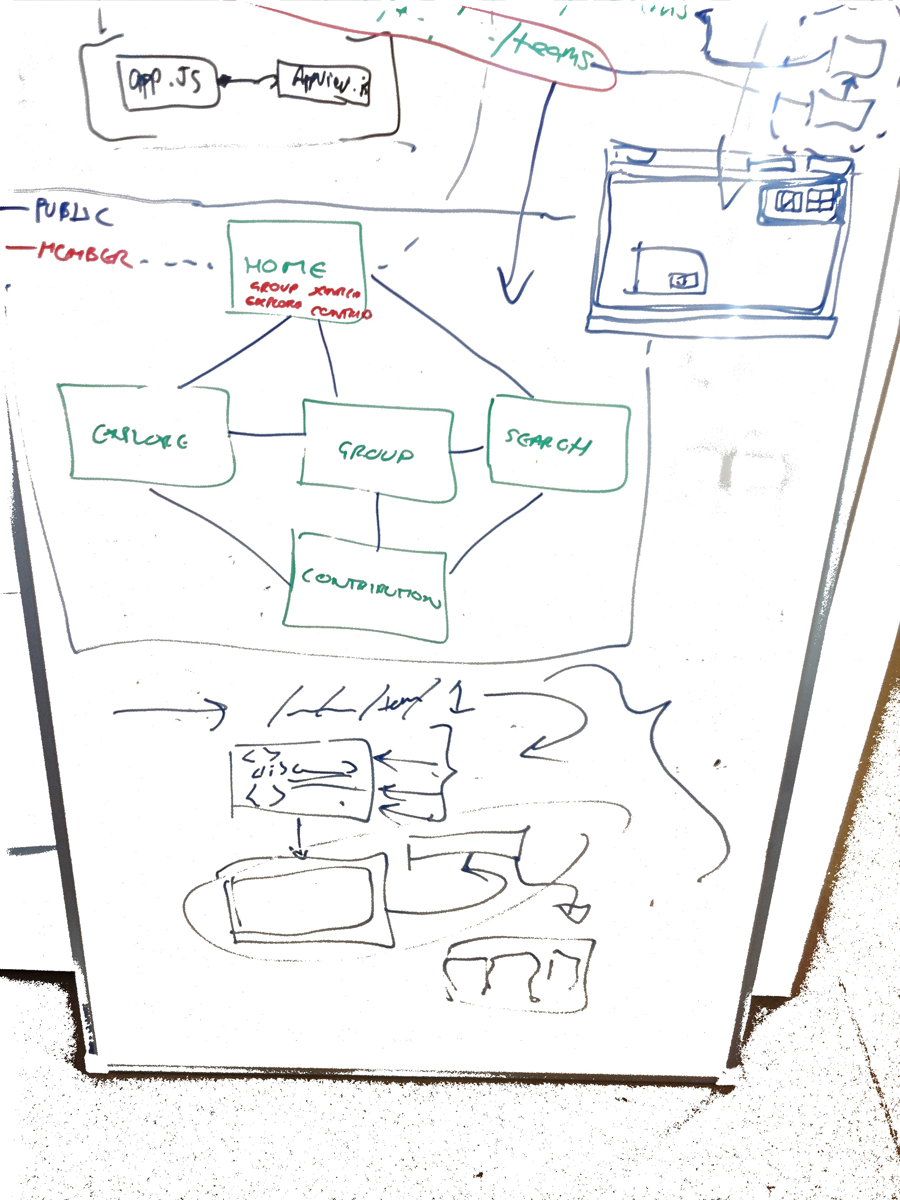 /teams
app.JS
AppView.js
PUBLIC
MEMBER
HOME
GROUP SEARCH
EXPLORE CONTRIB
EXPLORE
GROUP
SEARCH
CONTRIBUTION
/team/1
< >
< >